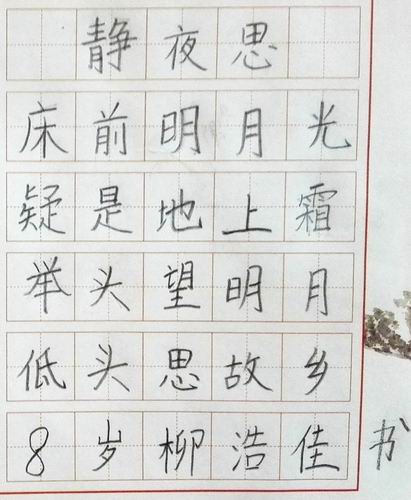 静夜思
床前明月光
疑是地上霜
举头望明月
低头思故乡
8岁柳浩佳书